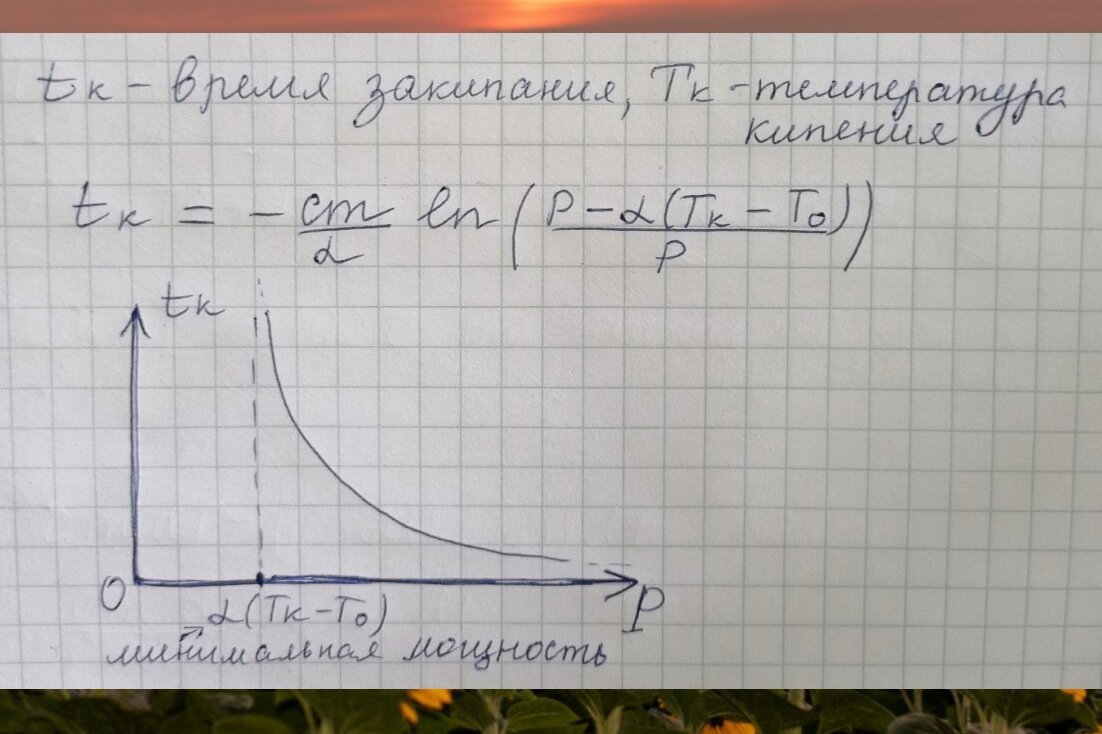 tк – время закипания, Tк – температура
кипения
tк = - cm/α ln((P - α(Tк - T₀))/P)
tк
0
α(Tк - T₀)
P
минимальная мощность